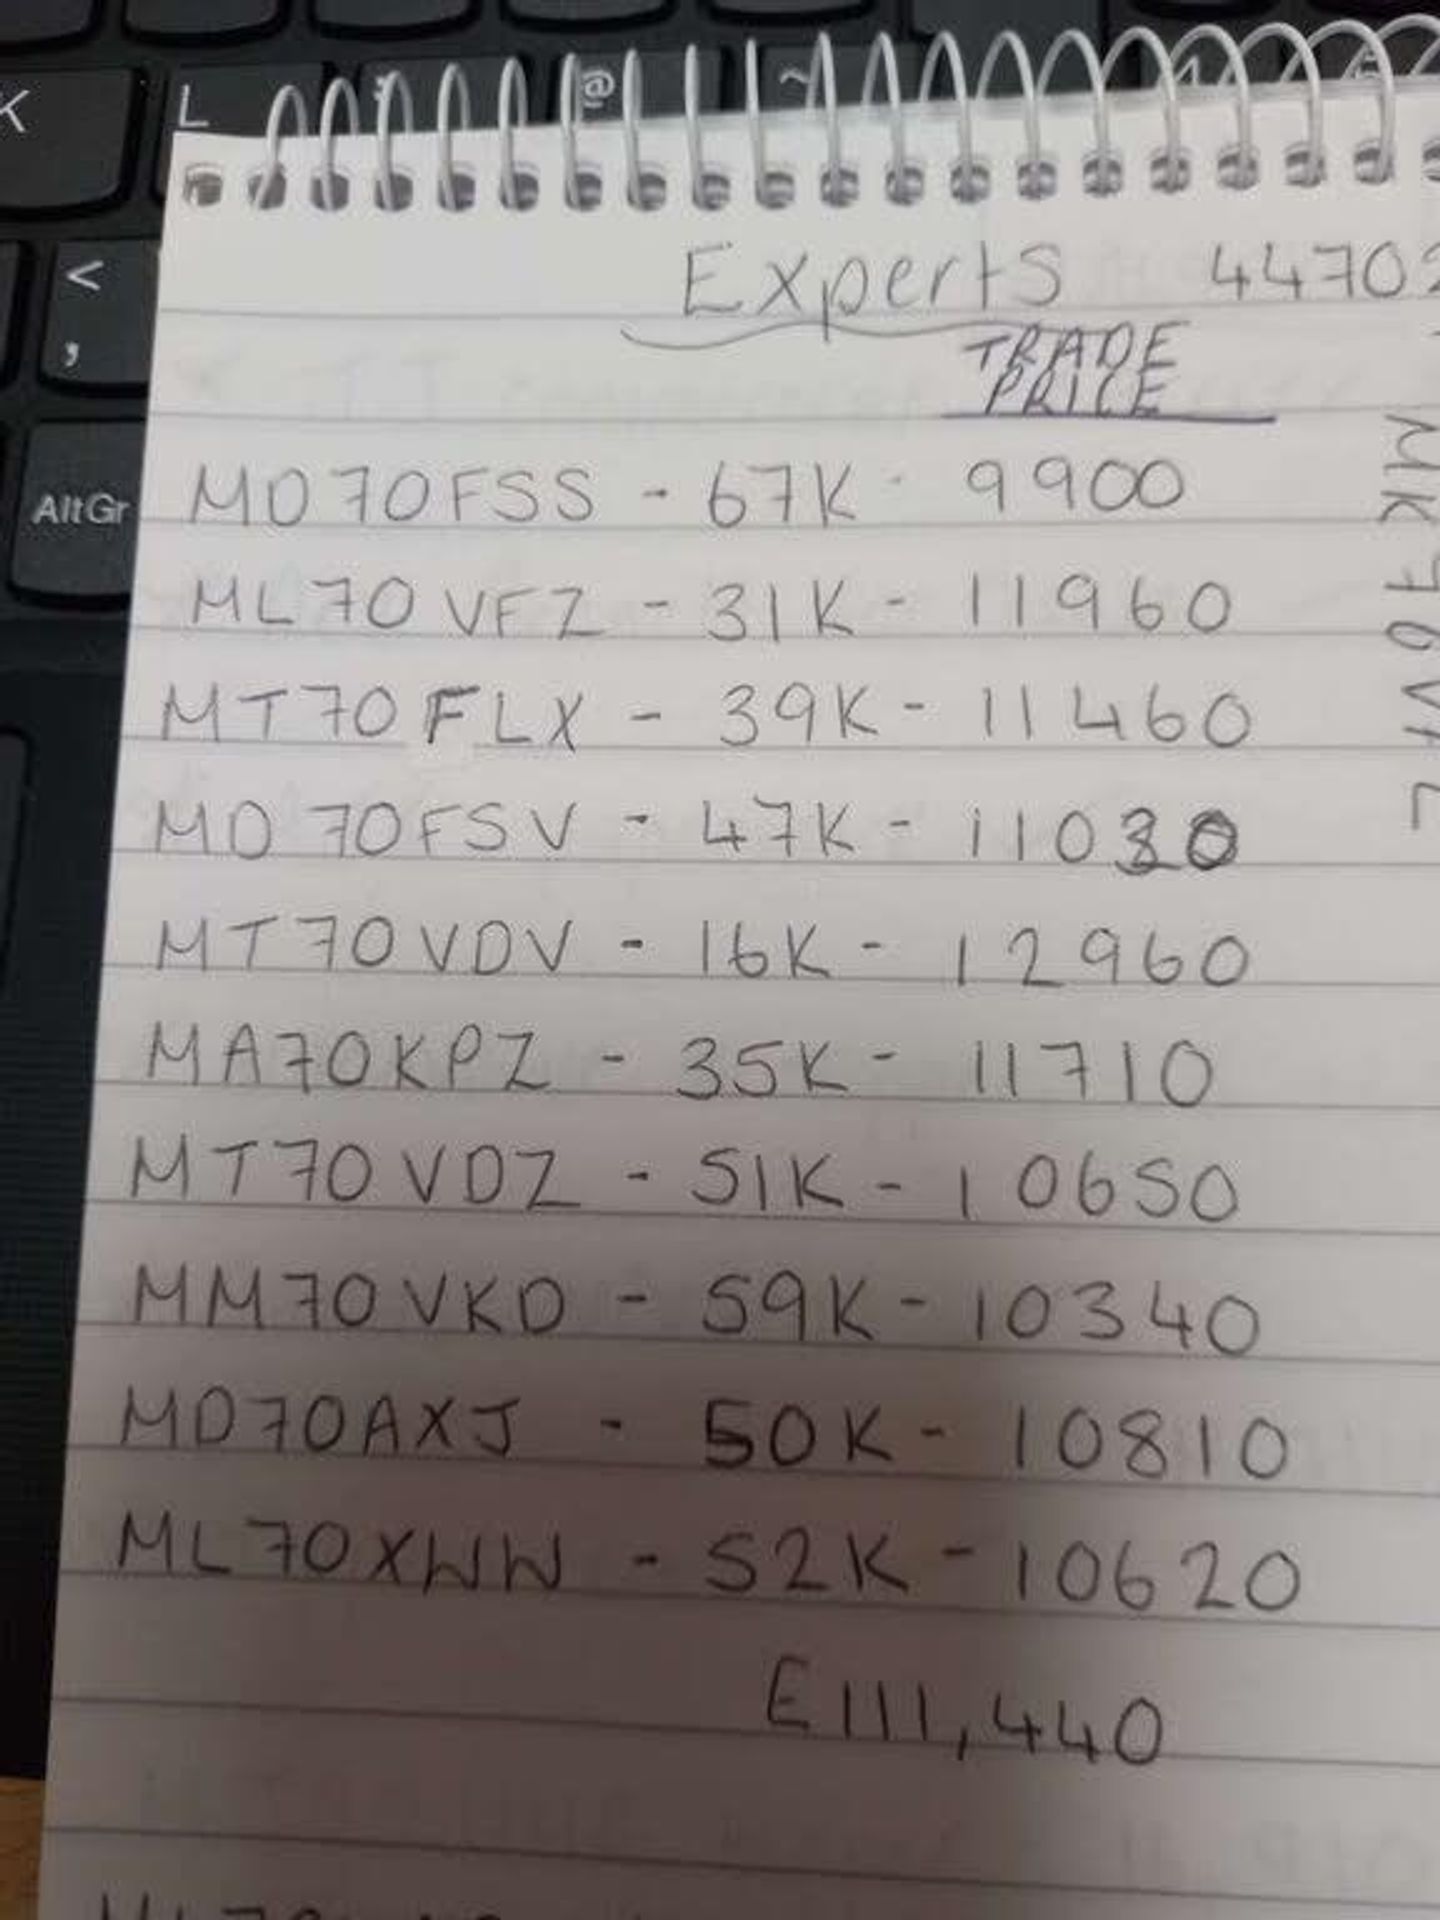 Experts 44702
TRADE
PRICE
MD70FSS - 67K - 9900
ML70 VFZ - 31K - 11960
MT70 FLX - 39K - 11460
MD 70FSV - 47K - 11030
MT 70VDV - 16K - 12960
MA70KPZ - 35K - 11710
MT70 VDZ - 51K - 10650
MM70VKD - 59K - 10340
MD70AXJ - 50K - 10810
ML70XWW - 52K - 10620
£111,440
K
L
@
~
<
,
AltGr